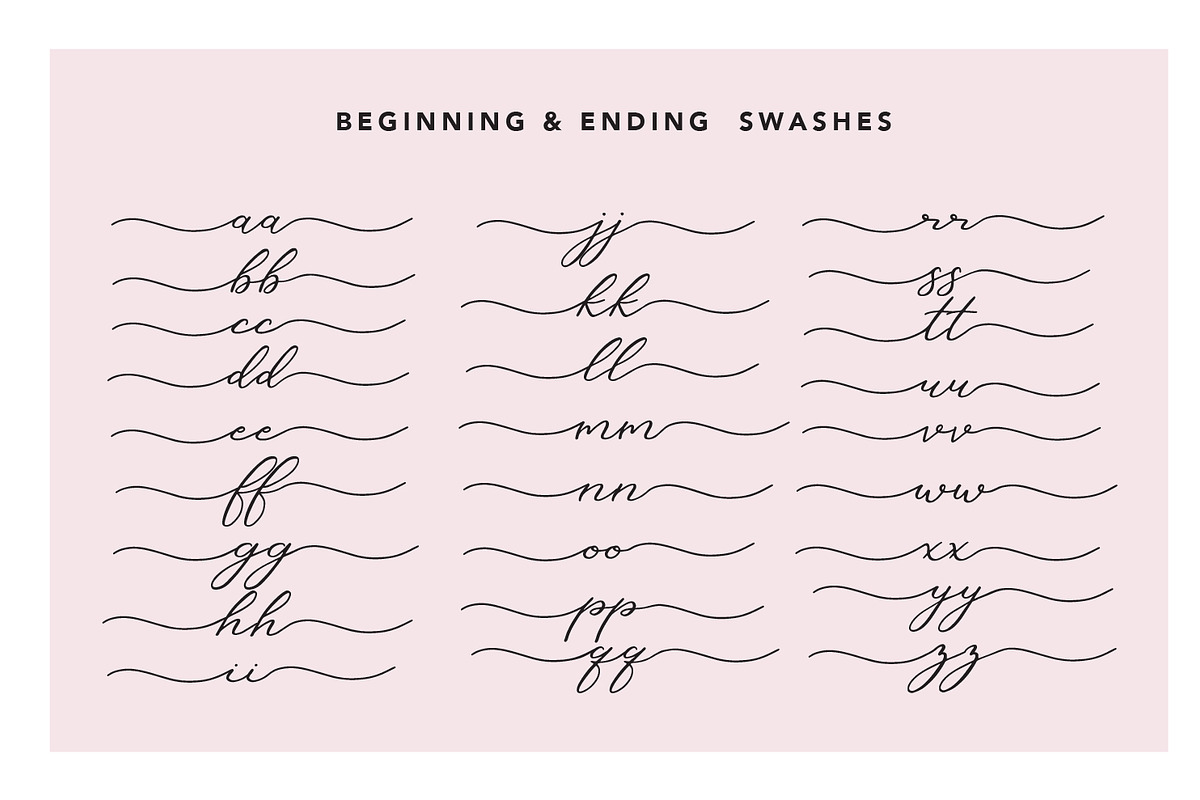 BEGINNING & ENDING SWASHES
aa
bb
cc
dd
ee
ff
gg
hh
ii
jj
kk
ll
mm
nn
oo
pp
qq
rr
ss
tt
uu
vv
ww
xx
yy
zz